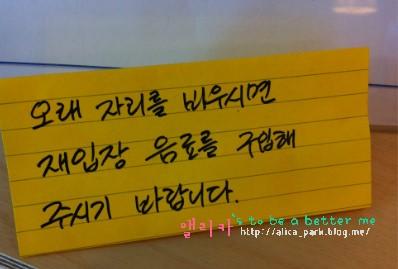 오래 자리를 비우시면
재입장 음료를 구입해
주시기 바랍니다.
앨리카's to be a better me
http://alica_park.blog.me/